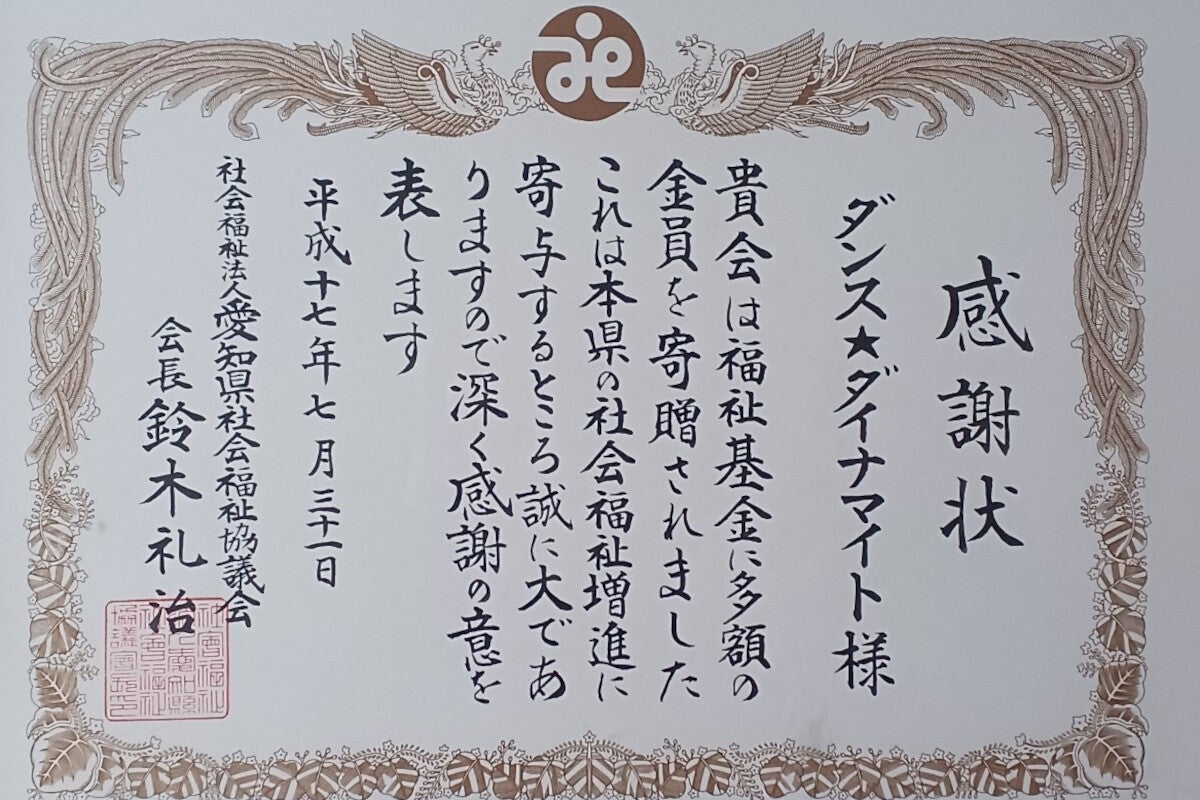 感謝状
ダンス★ダイナマイト様
貴会は福祉基金に多額の
金員を寄贈されました
これは本県の社会福祉増進に
寄与するところ誠に大であ
りますので深く感謝の意を
表します
平成十七年七月三十一日
社会福祉法人愛知県社会福祉協議会
会長鈴木礼治